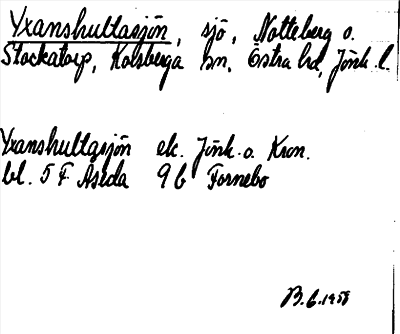 Yxanshultasjön, sjö, Notteberg o.
Stockatorp, Kolsberga sn, Östra hd, Jönk. l.
Yxanshultasjön ek. Jönk. o. Kron.
bl. 5 F Åseda 9 b Fornebo
B. 6. 1958